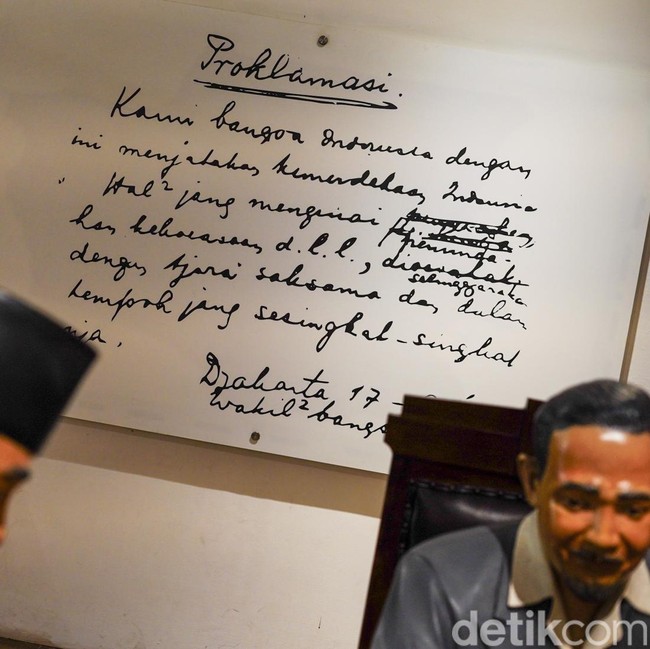 Proklamasi.
Kami bangsa Indonesia dengan
ini menjatakan kemerdekaan Indonesia
Hal² jang mengenai peminda-
han kekoeasaan d.l.l., diselenggarakan
dengan tjara saksama dan dalam
tempoh jang sesingkat-singkat
nja.
Djakarta, 17 -
Wakil² bangs
detikcom